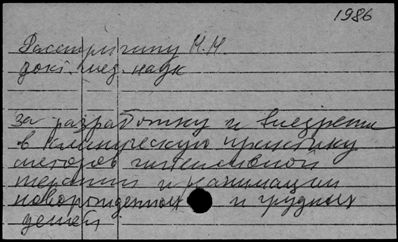 1986
Расстригину Н.Н.
докт. мед. наук
за разработку и внедрение
в клиническую практику
методов интенсивной
терапии и реанимации
новорожденных и грудных
детей